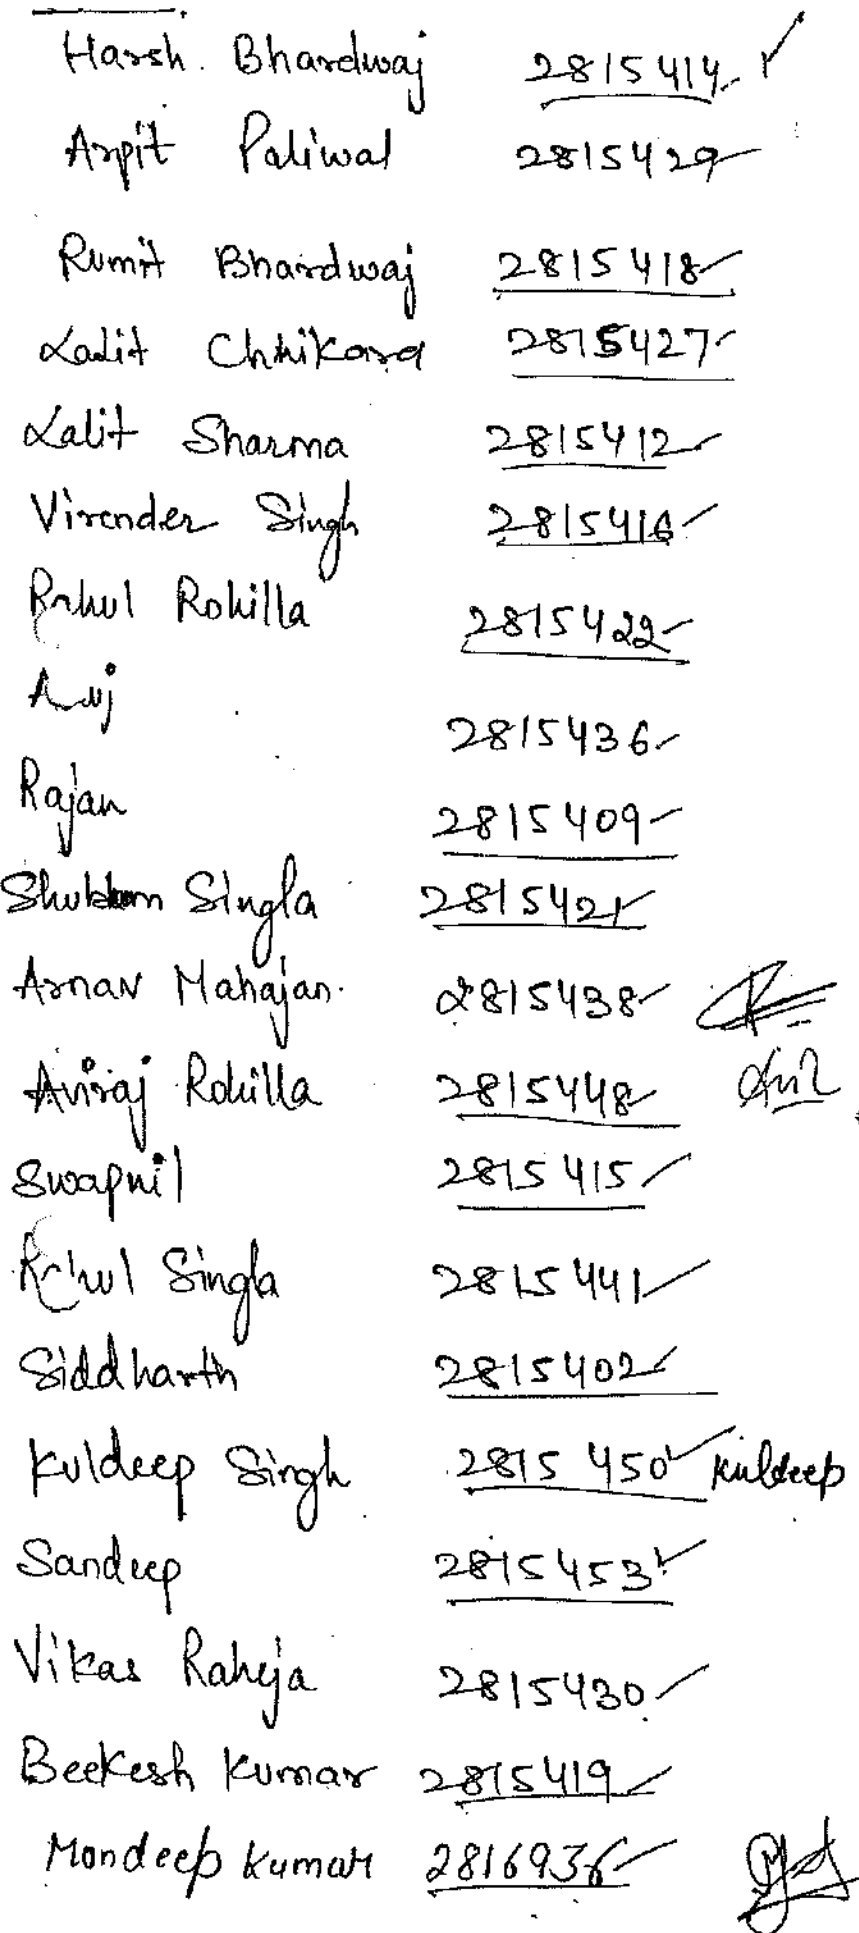 Harsh. Bhardwaj 2815414
Arpit Paliwal 2815429
Rumit Bhardwaj 2815418
Lalit Chhikara 2815427
Lalit Sharma 2815412
Virender Singh 2815416
Rahul Rohilla 2815422
2815436
Rajan 2815409
Shubham Singla 2815421
Arnav Mahajan. 2815438
Aviraj Rohilla 2815448
Swapnil 2815415
Rahul Singla 2815441
Siddharth 2815402
Kuldeep Singh 2815450 Kuldeep
Sandeep 2815453
Vikas Raheja 2815430
Beekesh Kumar 2815419
Mandeep Kumar 2816936